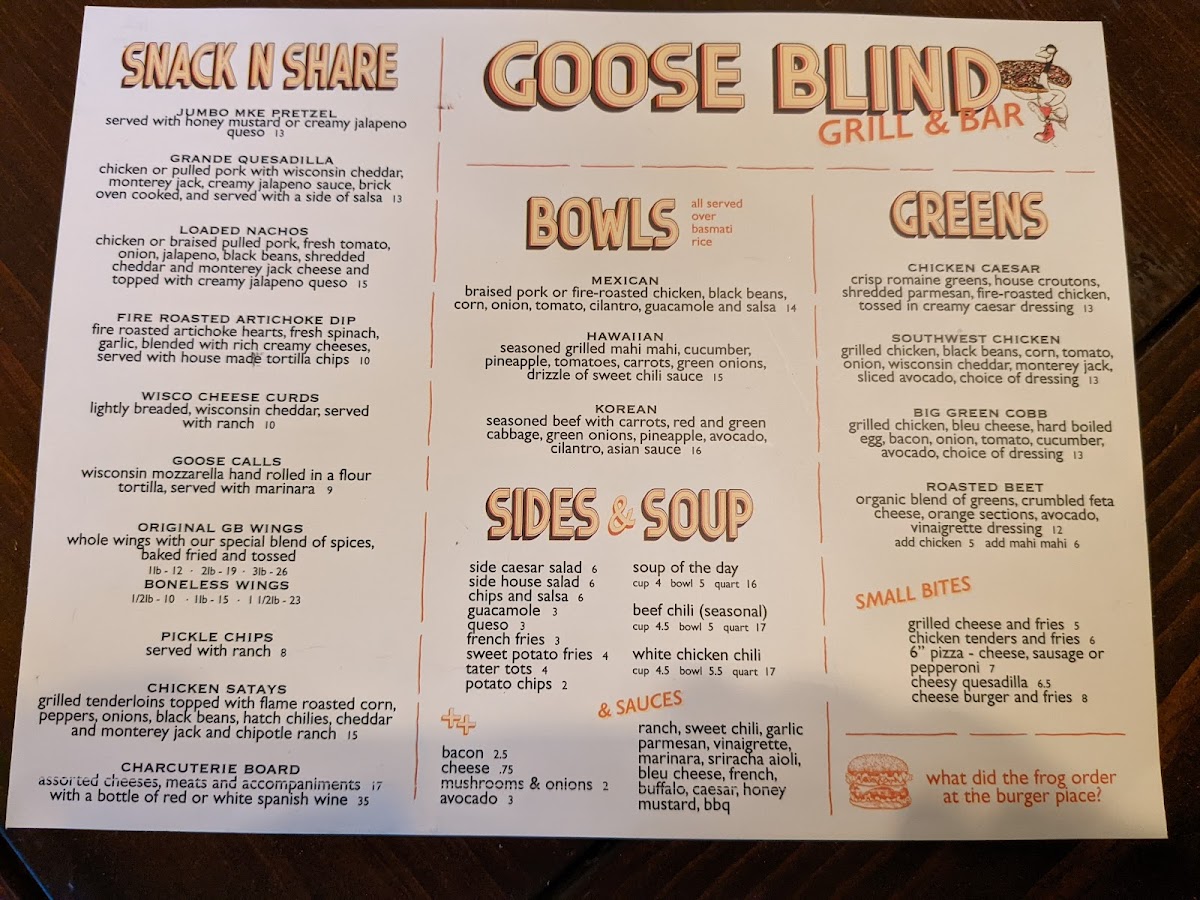 SNACK N SHARE
JUMBO MKE PRETZEL
served with honey mustard or creamy jalapeno
queso 13
GRANDE QUESADILLA
chicken or pulled pork with wisconsin cheddar,
monterey jack, creamy jalapeno sauce, brick
oven cooked, and served with a side of salsa 13
LOADED NACHOS
chicken or braised pulled pork, fresh tomato,
onion, jalapeno, black beans, shredded
cheddar and monterey jack cheese and
topped with creamy jalapeno queso 15
FIRE ROASTED ARTICHOKE DIP
fire roasted artichoke hearts, fresh spinach,
garlic, blended with rich creamy cheeses,
served with house made tortilla chips 10
WISCO CHEESE CURDS
lightly breaded, wisconsin cheddar, served
with ranch 10
GOOSE CALLS
wisconsin mozzarella hand rolled in a flour
tortilla, served with marinara 9
ORIGINAL GB WINGS
whole wings with our special blend of spices,
baked fried and tossed
1lb - 12 · 2lb - 19 · 3lb - 26
BONELESS WINGS
1/2lb - 10 · 1lb - 15 · 1 1/2lb - 23
PICKLE CHIPS
served with ranch 8
CHICKEN SATAYS
grilled tenderloins topped with flame roasted corn,
peppers, onions, black beans, hatch chilies, cheddar
and monterey jack and chipotle ranch 15
CHARCUTERIE BOARD
assorted cheeses, meats and accompaniments 17
with a bottle of red or white spanish wine 35
GOOSE BLIND
GRILL & BAR
BOWLS
all served
over
basmati
rice
MEXICAN
braised pork or fire-roasted chicken, black beans,
corn, onion, tomato, cilantro, guacamole and salsa 14
HAWAIIAN
seasoned grilled mahi mahi, cucumber,
pineapple, tomatoes, carrots, green onions,
drizzle of sweet chili sauce 15
KOREAN
seasoned beef with carrots, red and green
cabbage, green onions, pineapple, avocado,
cilantro, asian sauce 16
SIDES & SOUP
side caesar salad 6
side house salad 6
chips and salsa 6
guacamole 3
queso 3
french fries 3
sweet potato fries 4
tater tots 4
potato chips 2
soup of the day
cup 4 bowl 5 quart 16
beef chili (seasonal)
cup 4.5 bowl 5 quart 17
white chicken chili
cup 4.5 bowl 5.5 quart 17
++
bacon 2.5
cheese .75
mushrooms & onions 2
avocado 3
& SAUCES
ranch, sweet chili, garlic
parmesan, vinaigrette,
marinara, sriracha aioli,
bleu cheese, french,
buffalo, caesar, honey
mustard, bbq
GREENS
CHICKEN CAESAR
crisp romaine greens, house croutons,
shredded parmesan, fire-roasted chicken,
tossed in creamy caesar dressing 13
SOUTHWEST CHICKEN
grilled chicken, black beans, corn, tomato,
onion, wisconsin cheddar, monterey jack,
sliced avocado, choice of dressing 13
BIG GREEN COBB
grilled chicken, bleu cheese, hard boiled
egg, bacon, onion, tomato, cucumber,
avocado, choice of dressing 13
ROASTED BEET
organic blend of greens, crumbled feta
cheese, orange sections, avocado,
vinaigrette dressing 12
add chicken 5 add mahi mahi 6
SMALL BITES
grilled cheese and fries 5
chicken tenders and fries 6
6” pizza - cheese, sausage or
pepperoni 7
cheesy quesadilla 6.5
cheese burger and fries 8
what did the frog order
at the burger place?